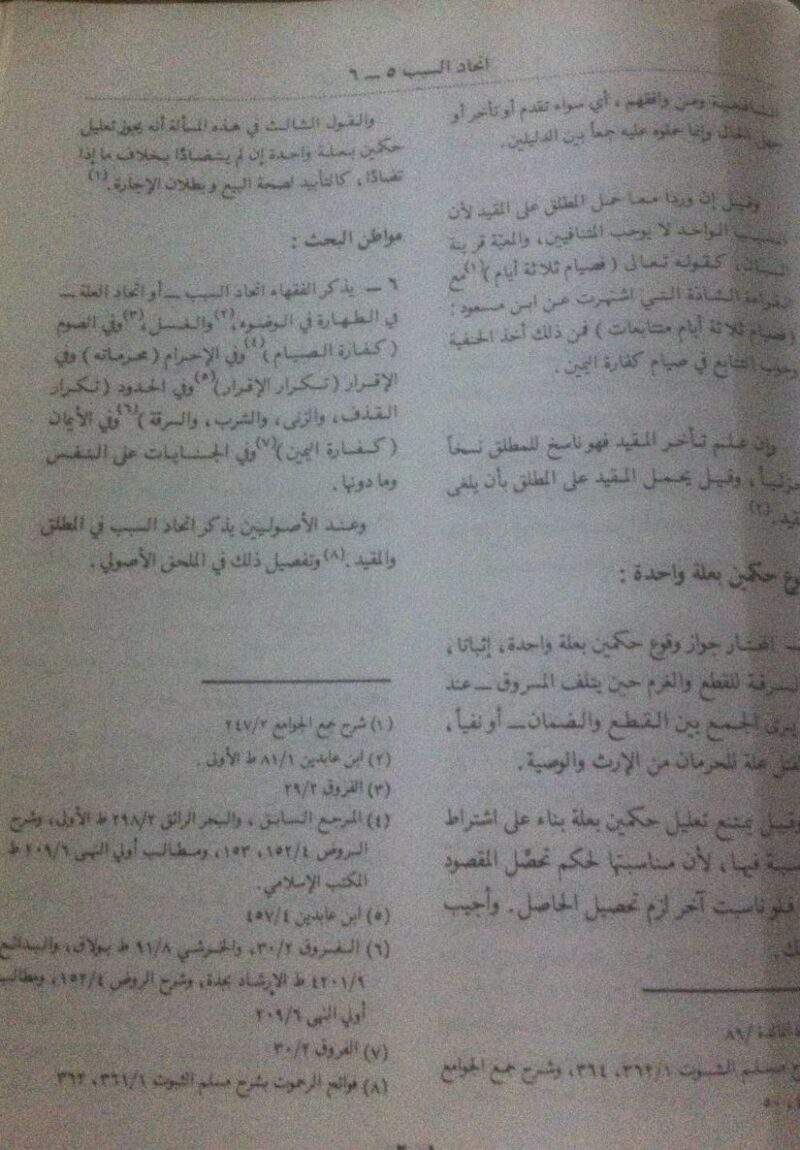 اتحاد السبب ٥ ــ ٦
الشافعية ومن وافقهم ، أي سواء تقدم أو تأخر أو
جهل الحال وإنما حملوه عليه جمعاً بين الدليلين.
وقيل إن وردا معا حمل المطلق على المقيد لأن
السبب الواحد لا يوجب المتنافيين، والمعيّة قرينة
البيان، كقوله تعالى (فصيام ثلاثة أيام)(١) مع
القراءة الشاذة التي اشتهرت عن ابن مسعود :
(فصيام ثلاثة أيام متتابعات ) فمن ذلك أخذ الحنفية
وجوب التتابع في صيام كفارة اليمين .
وإن علم تأخر المقيد فهو ناسخ للمطلق نسخاً
جزئياً، وقيل يحمل المقيد على المطلق بأن يلغى
قيد.(٢)
حكمين بعلة واحدة :
المختار جواز وقوع حكمين بعلة واحدة، إثباتا،
للقطع والغرم حين يتلف المسروق ــ عند
يرى الجمع بين القطع والضمان ــ أو نفياً،
علة للحرمان من الإرث والوصية.
وقيل يمتنع تعليل حكمين بعلة بناء على اشتراط
فيها، لأن مناسبتها لحكم تحصّل المقصود
فلو ناسبت آخر لزم تحصيل الحاصل. وأجيب
/٨٩
مسلم الثبوت ٣٦٢/١، ٣٦٤، وشرح جمع الجوامع
٥٠
والقول الثالث في هذه المسألة أنه يجوز تعليل
حكمين بعلة واحدة إن لم يتضادّا بخلاف ما إذا
تضادّا، كالتأبيد لصحة البيع وبطلان الإجارة.(١)
مواطن البحث :
٦ ــ يذكر الفقهاء اتحاد السبب ــ أو اتحاد العلة ــ
في الطهارة في الوضوء،(٢) والغسل،(٣) وفي الصوم
(كفارة الصيام)(٤) وفي الإحرام (محرماته) وفي
الإقرار (تكرار الإقرار)(٥) وفي الحدود (تكرار
القذف، والزنى، والشرب، والسرقة )(٦) وفي الأيمان
(كفارة اليمين)(٧) وفي الجنايات على النفس
وما دونها .
وعند الأصوليين يذكر اتحاد السبب في المطلق
والمقيد .(٨) وتفصيل ذلك في الملحق الأصولي .
(١) شرح جمع الجوامع ٢٤٧/٢
(٢) ابن عابدين ٨١/١ ط الأولى .
(٣) الفروق ٢٩/٢
(٤) المرجع السابق ، والبحر الرائق ٢٩٨/٢ ط الأولى، وشرح
الروض ١٥٢/٤، ١٥٣، ومطالب أولي النهى ٢٠٩/٦ ط
المكتب الإسلامي.
(٥) ابن عابدين ٤٥٧/٤
(٦) الفروق ٣٠/٢، والخرشي ٩١/٨ ط بولاق، والبدائع
٤٢٠١/٩ ط الإرشاد بجدة، وشرح الروض ١٥٢/٤، ومطالب
أولي النهى ٢٠٩/٦
(٧) الفروق ٣٠/٢
(٨) فواتح الرحموت بشرح مسلم الثبوت ٣٦١/١، ٣٦٢